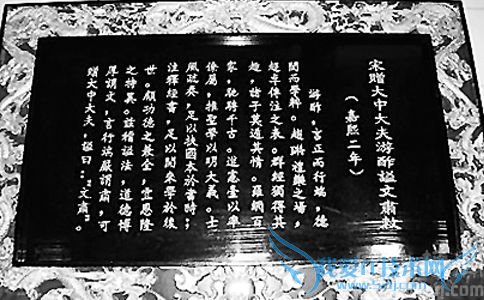 宋贈大中大夫游酢諡文肅敕
（嘉熙二年）
游酢，言正而行端，德
閎而學粹。趨之場，
超卓傳注之表。群經獨得其
趣，諸子莫遁其情。羅網百
家，馳騁千古。進憲臺以率
僚屬，推聖學以明大義。士
風疏奏，足以扶國本於當時；
注釋經書，足以開來學於後
世。顧功德之兼全，宜恩隆
之特異。茲稽諡法，道德博
厚謂文，言行端嚴謂肅，可
贈大中大夫，諡曰：“文肅”。
我爱IT技术网